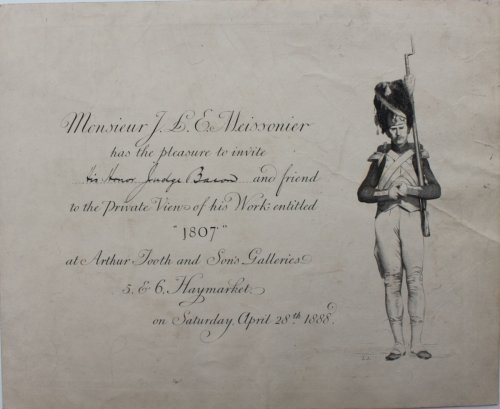 Monsieur J. L. E. Meissonier
has the pleasure to invite
His Honor Judge Bacon and friend
to the Private View of his Work entitled
"1807"
at Arthur Tooth and Son's Galleries
5. & 6. Haymarket
on Saturday, April 28th 1888.